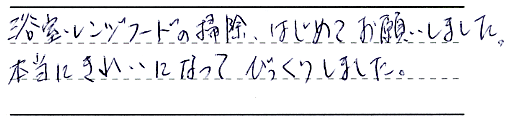 浴室・レンジフードの掃除、はじめてお願いしました。
本当にきれいになってびっくりしました。